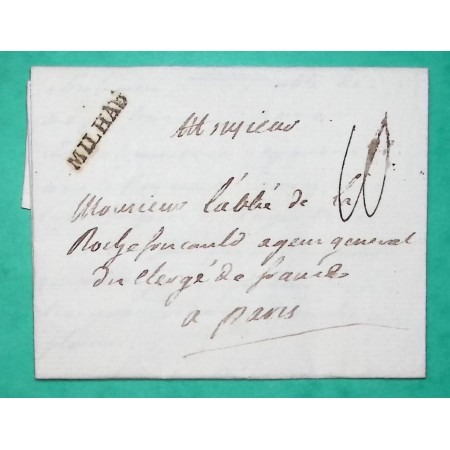 MILHAU
Monsieur
Monsieur l'abbé de la
Rochefoucauld agent general
du Clergé de france
a paris